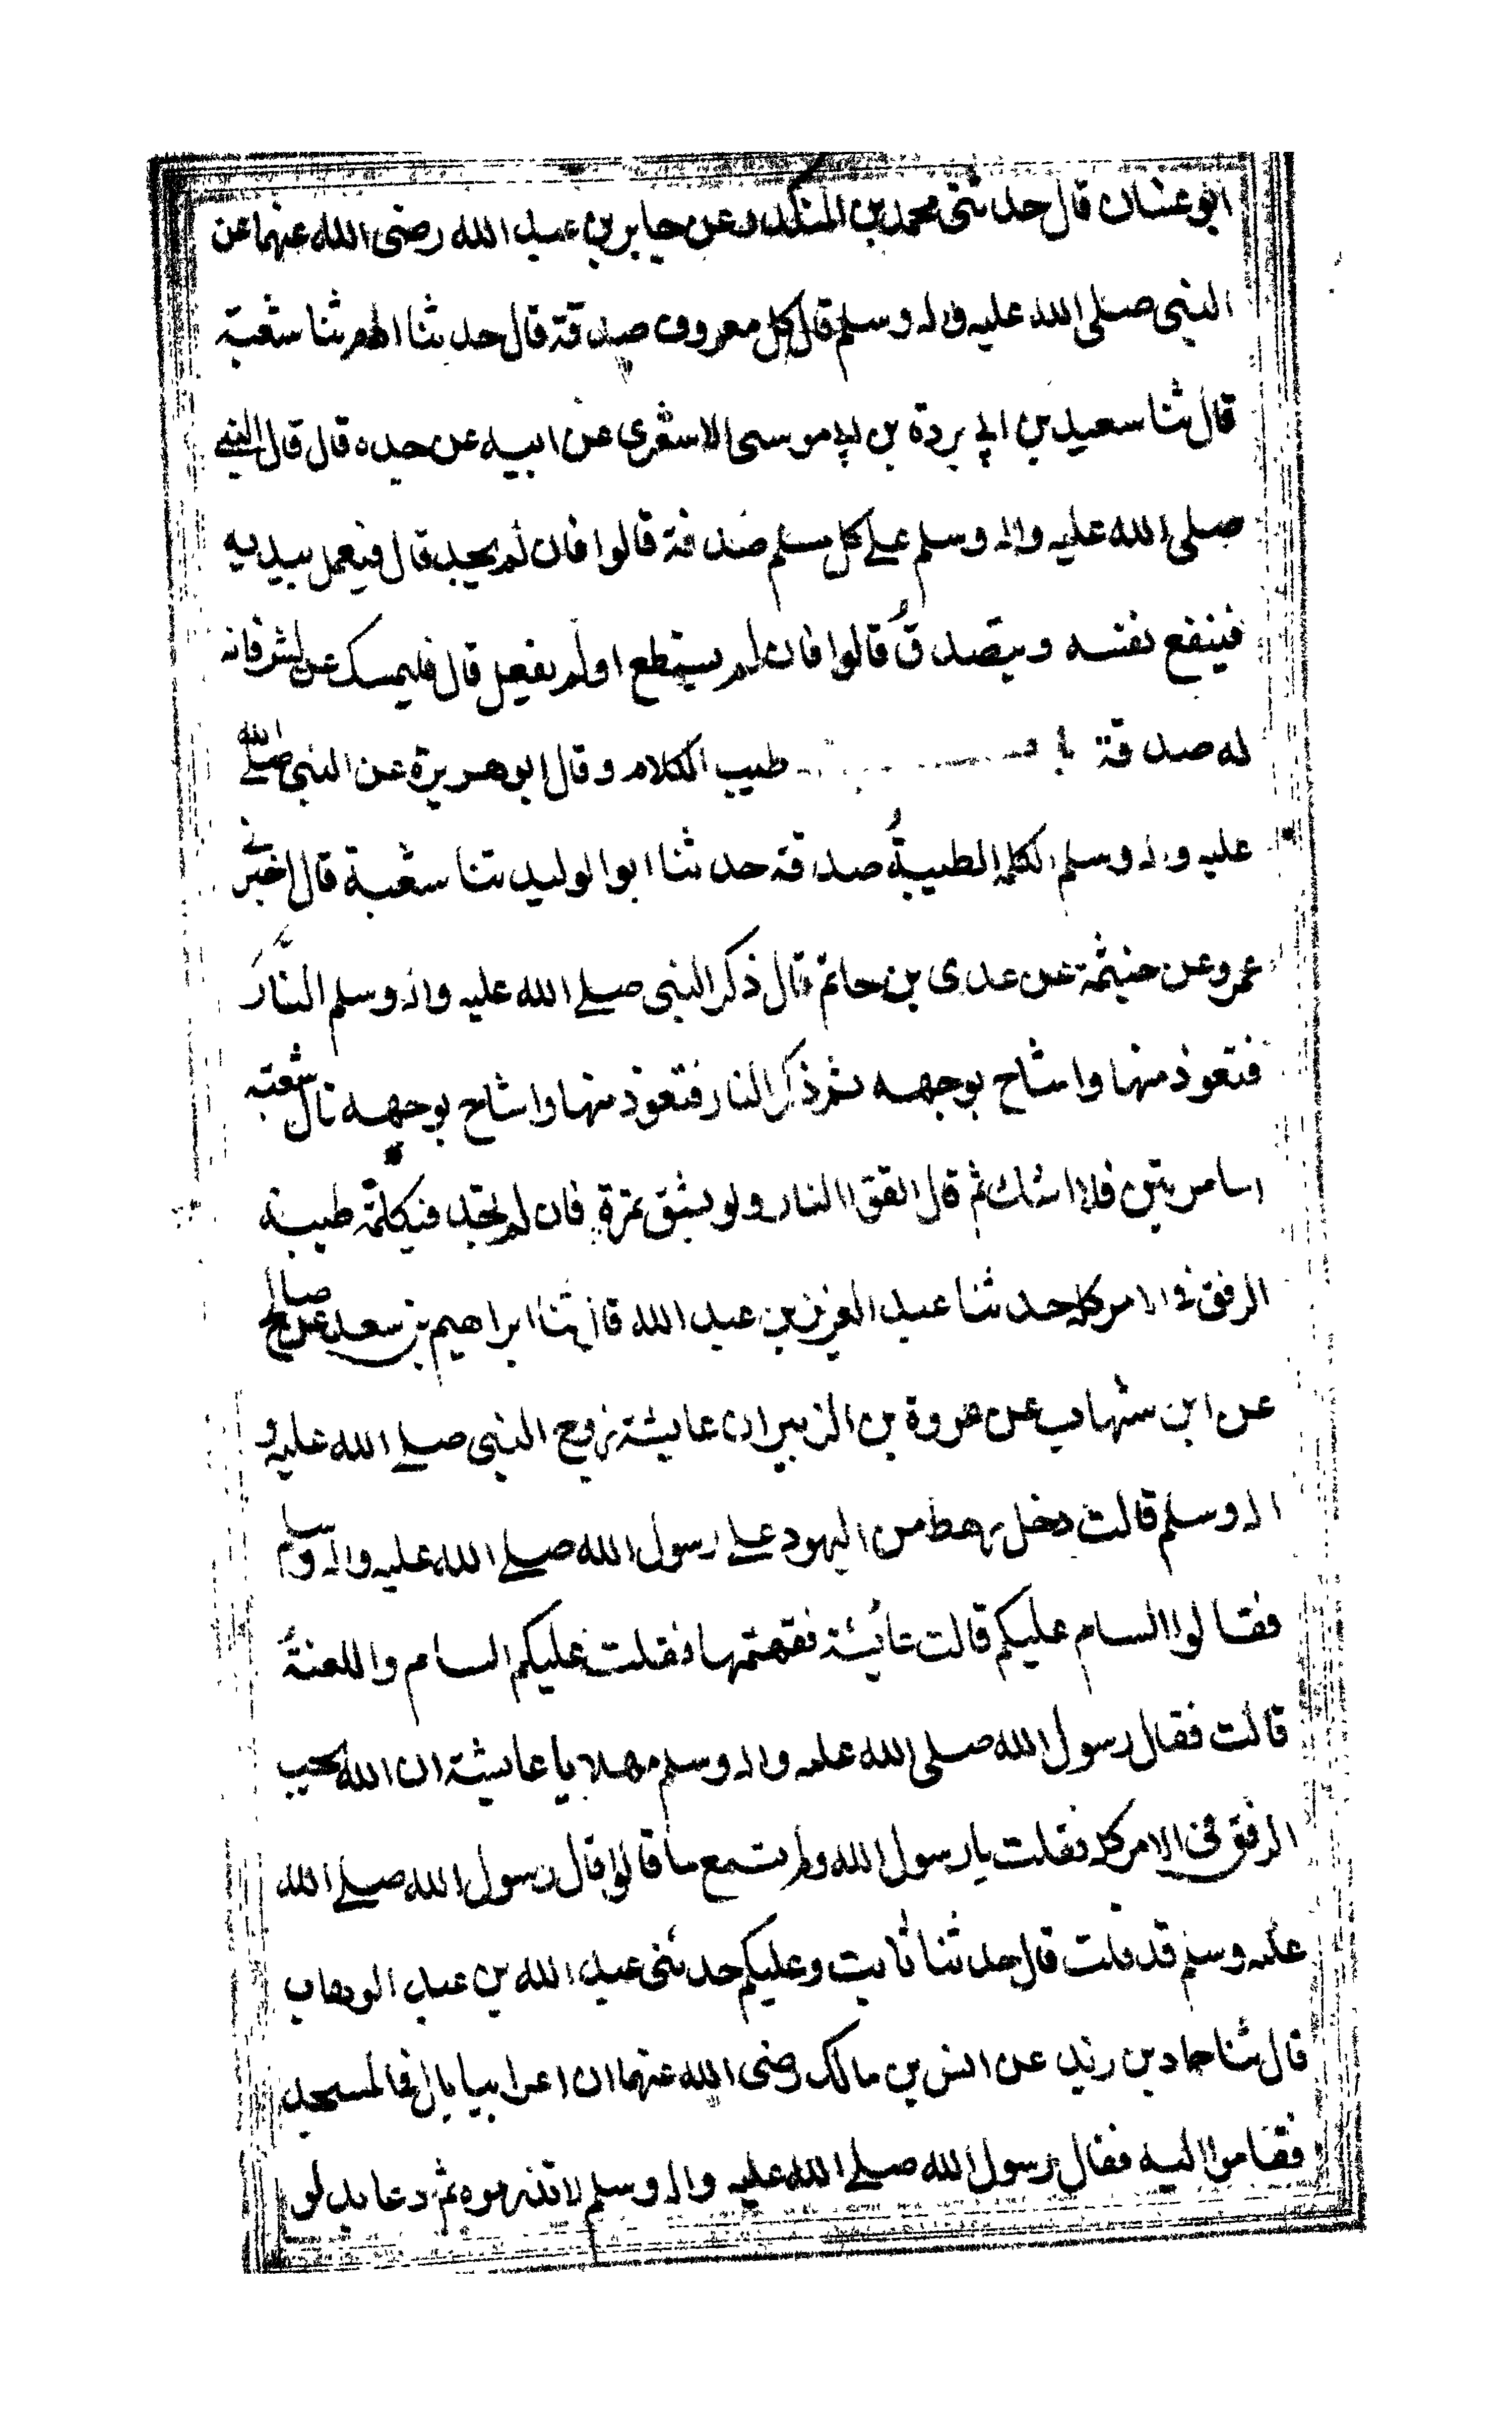 ابو غسان قال حدثنى محمد بن المنكدر عن جابر بن عبد الله رضى الله عنهما عن
النبى صلى الله عليه واله وسلم قال كل معروف صدقة قال حدثنا ادم ثنا شعبة
قال ثنا سعيد بن ابى بردة بن ابى موسى الاشعرى عن ابيه عن جده قال قال النبى
صلى الله عليه واله وسلم على كل مسلم صدقة قالوا فان لم يجد قال فيعمل بيديه
فينفع نفسه ويتصدق قالوا فان لم يستطع او لم يفعل قال فليمسك عن الشر فانه
له صدقة طيب الكلام وقال ابو هريرة عن النبى صلى الله
عليه واله وسلم الكلمة الطيبة صدقة حدثنا ابو الوليد ثنا شعبة قال اخبرنى
عمرو عن خيثمة عن عدى بن حاتم قال ذكر النبى صلى الله عليه واله وسلم النار
فتعوذ منها واشاح بوجهه ثم ذكر النار فتعوذ منها واشاح بوجهه قال شعبة
اما مرتين فلا اشك ثم قال اتقوا النار ولو بشق تمرة فان لم تجد فبكلمة طيبة
الرفق فى الامر كله حدثنا عبد العزيز بن عبد الله قال ثنا ابراهيم بن سعد عن صالح
عن ابن شهاب عن عروة بن الزبير ان عايشة زوج النبى صلى الله عليه و
اله وسلم قالت دخل رهط من اليهود على رسول الله صلى الله عليه واله وسلم
فقالوا السام عليكم قالت عائشة ففهمتها فقلت عليكم السام واللعنة
قالت فقال رسول الله صلى الله عليه واله وسلم مهلا يا عايشة ان الله يحب
الرفق فى الامر كله فقلت يا رسول الله ولم تسمع ما قالوا قال رسول الله صلى الله
عليه وسلم قد قلت قال حدثنا ثابت وعليكم حدثنى عبد الله بن عبد الوهاب
قال ثنا حماد بن زيد عن انس بن مالك رضى الله عنهما ان اعرابيا بال فى المسجد
فقاموا اليه فقال رسول الله صلى الله عليه واله وسلم لا تزرموه ثم دعا بدلو